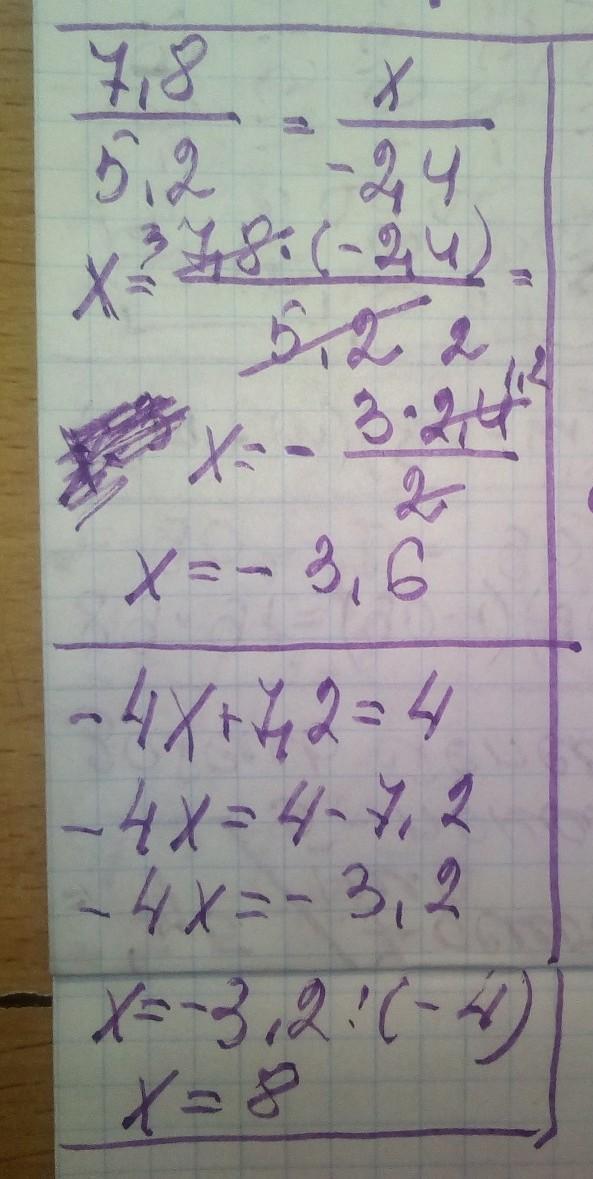 7,8 / 5,2 = x / -2,4
x = 3 7,8 · (-2,4) / 5,2 2 =
x = - 3 · 2,4 1,2 / 2
x = - 3,6
- 4x + 7,2 = 4
- 4x = 4 - 7,2
- 4x = - 3,2
x = -3,2 : (-4)
x = 8